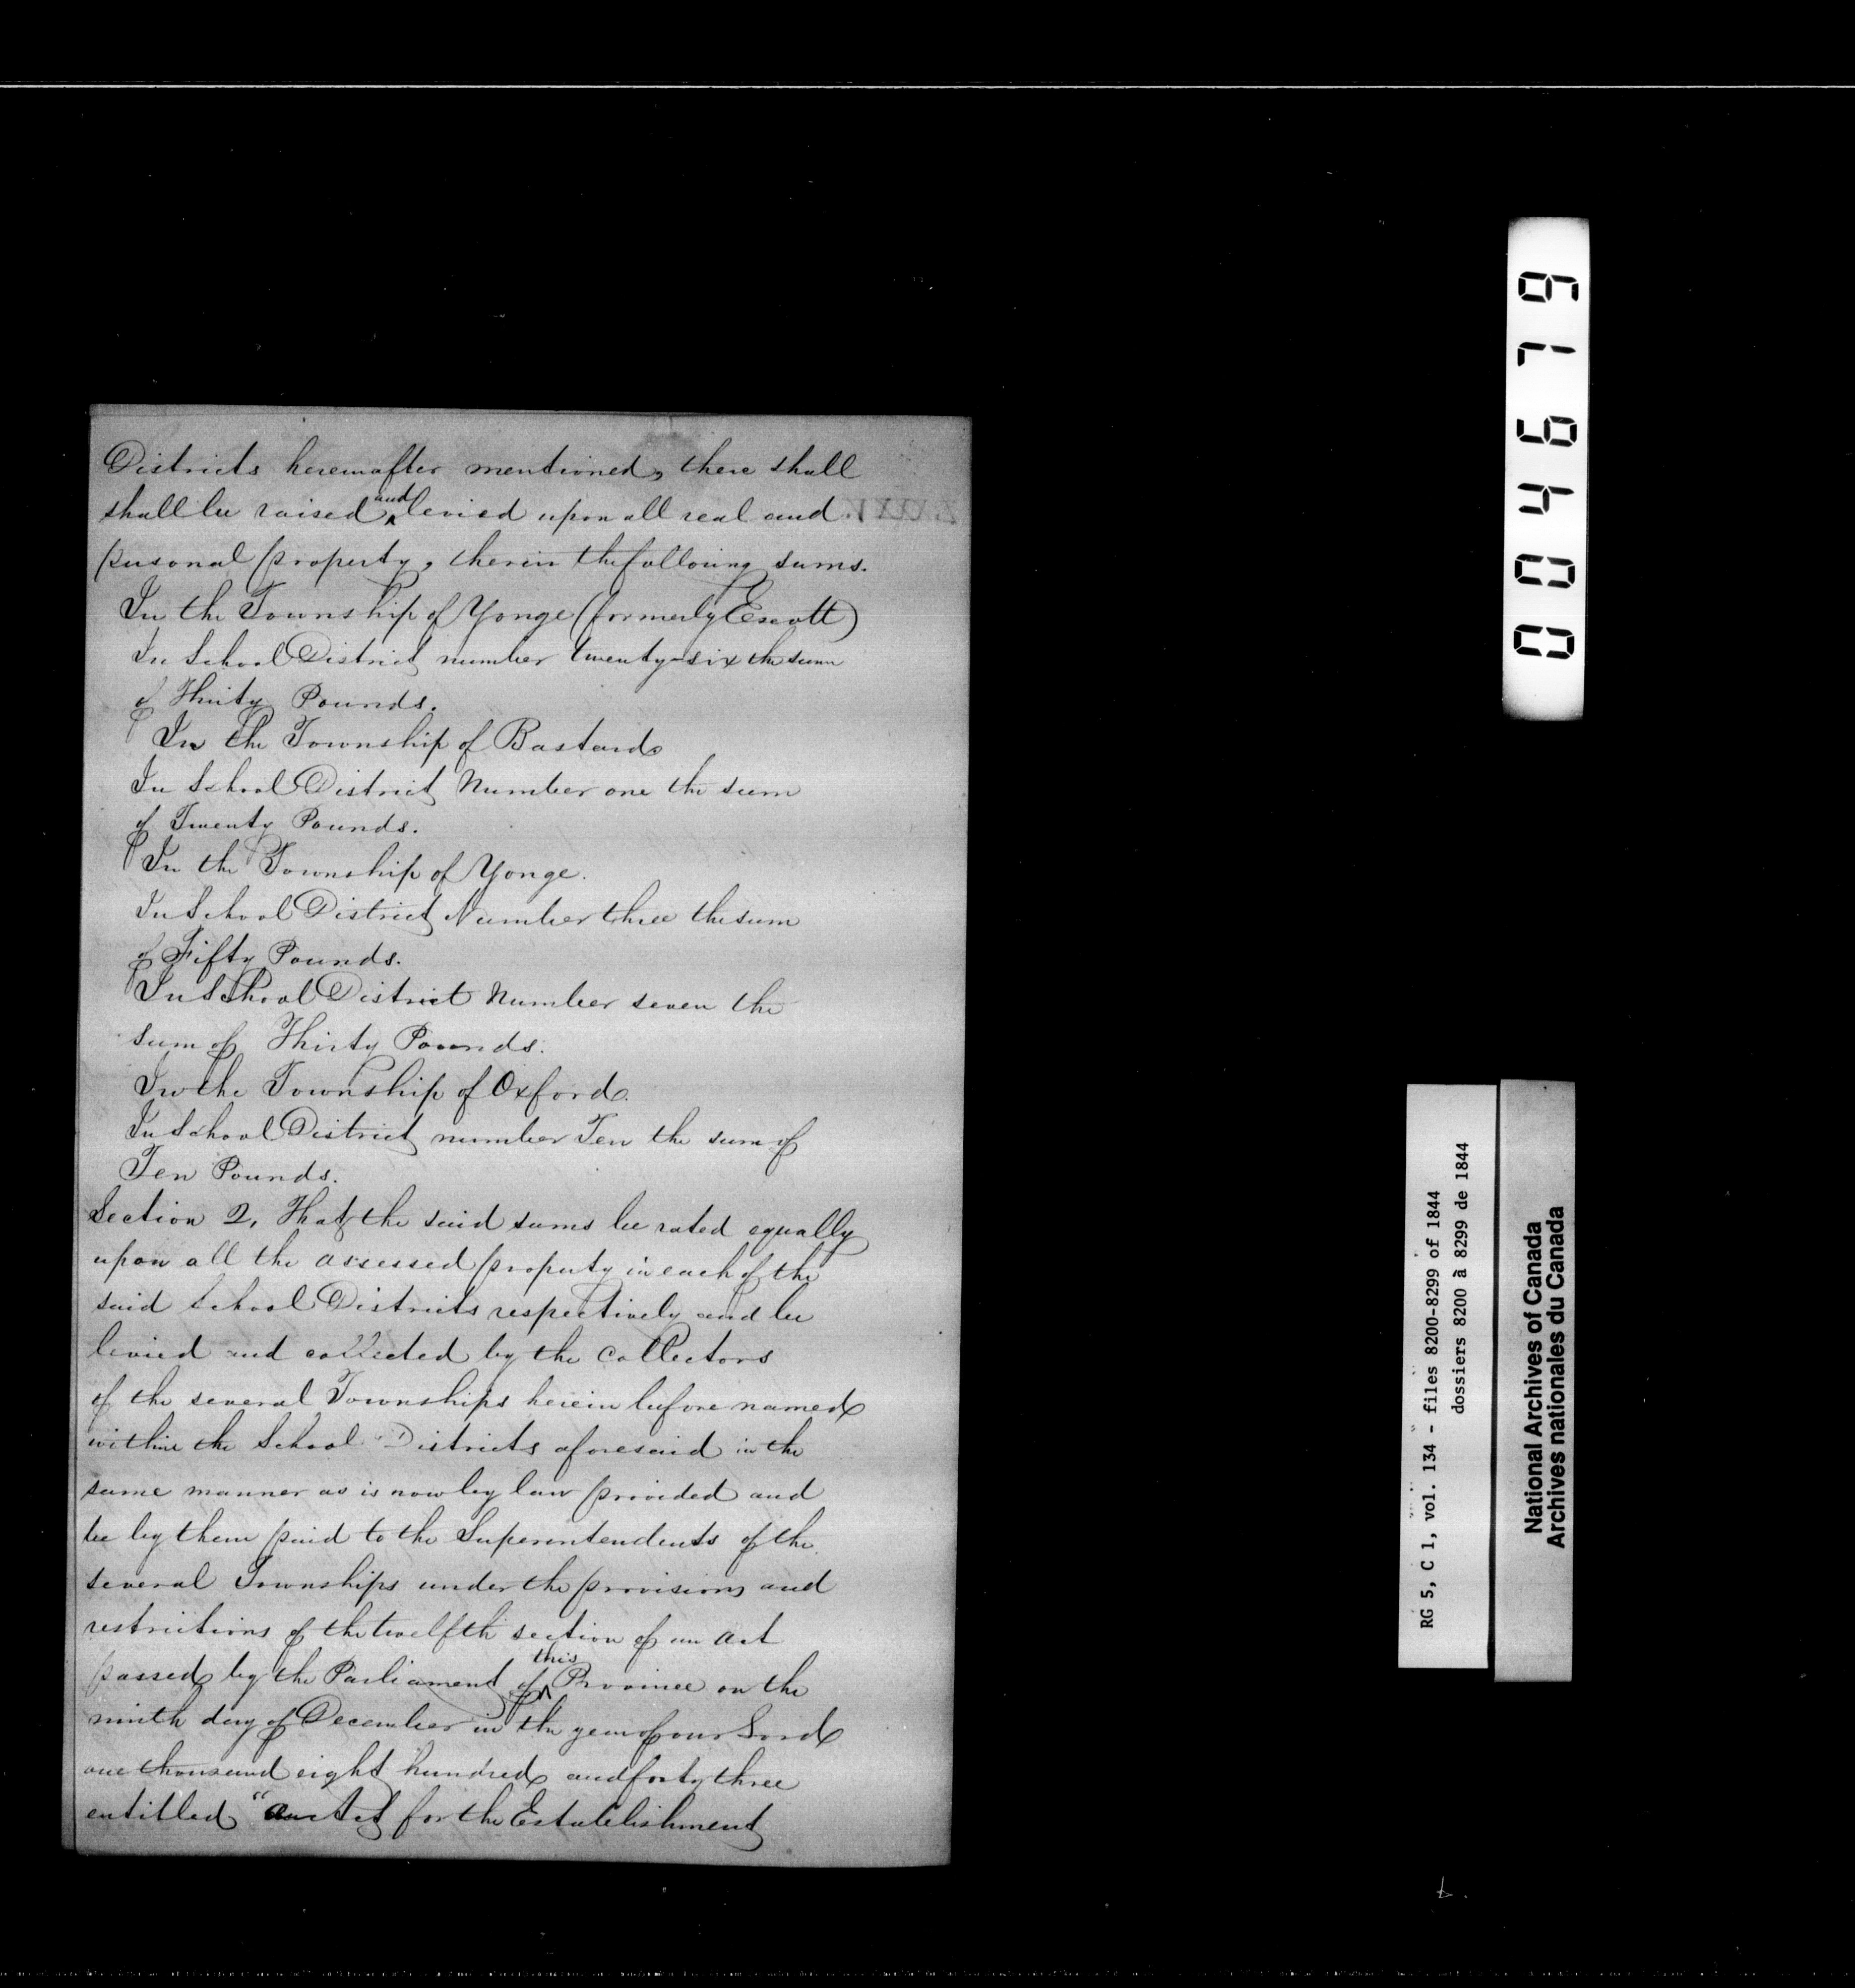 Districts hereinafter mentioned, there shall
shall be raised and levied upon all real and
personal property, therein the following sums.
In the Township of Yonge (formerly Escott)
In School District number twenty-six the sum
of Thirty Pounds.
In the Township of Bastard
In School District Number one the sum
of Twenty Pounds.
In the Township of Yonge.
In School District Number three the sum
of Fifty Pounds.
In School District Number seven the
sum of Thirty Pounds.
In the Township of Oxford.
In School District number Ten the sum of
Ten Pounds.
Section 2, That the said sums be rated equally
upon all the assessed property in each of the
said School Districts respectively and be
levied and collected by the Collectors
of the several Townships herein before named
within the School Districts aforesaid in the
same manner as is now by law provided and
be by them paid to the Superentendents of the
several Townships under the provisions and
restrictions of the twelfth section of an Act
passed by the Parliament of this Province on the
ninth day of December in the year of our Lord
one thousand eight hundred and forty three
entitled "an Act for the Establishment
004679
RG 5, C 1, vol. 134 - files 8200-8299 of 1844
dossiers 8200 à 8299 de 1844
National Archives of Canada
Archives nationales du Canada